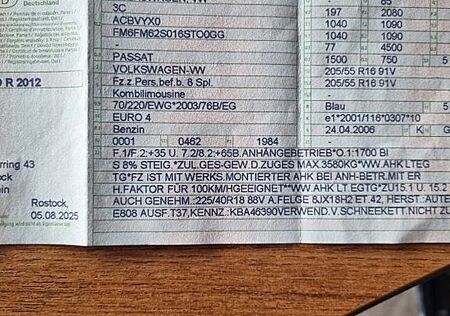 Deutschland
3C
ACBVYX0
FM6FM62S016STO0GG
-
PASSAT
VOLKSWAGEN-VW
Fz.z.Pers.bef.b. 8 Spl.
Kombilimousine
70/220/EWG*2003/76B/EG
EURO 4
Benzin
0001 0462 1984
197 2080
1040 1090
1040 1090
77 4500
1500 750 5
205/55 R16 91V
205/55 R16 91V
-
Blau 5
e1*2001/116*0307*10
24.04.2006 K G
R 2012
rring 43
Rostock,
05.08.2025
F.1/F.2:+35 U. 7.2/8.2:+65B.ANHÄNGEBETRIEB*O.1:1700 BI
S 8% STEIG *ZUL.GES-GEW.D.ZUGES MAX.3580KG*WW.AHK LTEG
TG*FZ IST MIT WERKS.MONTIERTER AHK BEI ANH-BETR.MIT ER
H.FAKTOR FÜR 100KM/HGEEIGNET**WW.AHK LT.EGTG*ZU15.1 U. 15.2
AUCH GENEHM.:225/40R18 88V A.FELGE 8JX18H2 ET.42, HERST.:AUTE
E808 AUSF.T37,KENNZ.:KBA46390VERWEND.V.SCHNEEKETT.NICHT ZU